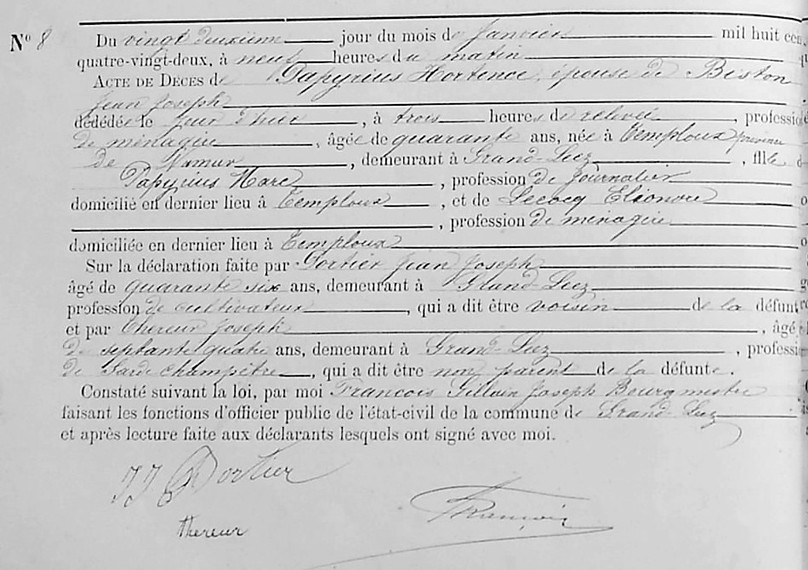 N° 8 Du vingt deuxième jour du mois de Janvier mil huit cen
quatre-vingt-deux, à neuf heures du matin
ACTE DE DÉCÈS de Papyrius Hortence, épouse de Biston
Jean Joseph
décédée le jour d'hier, à trois heures de relevée, professio
de ménagère, âgée de quarante ans, née à Temploux province
de Namur, demeurant à Grand-Leez, fille d
Papyrius Marc, profession de journalier
domicilié en dernier lieu à Temploux, et de Lecocq Elionore
, profession de ménagère
domiciliée en dernier lieu à Temploux
Sur la déclaration faite par Dortier Jean Joseph
âgé de quarante six ans, demeurant à Grand-Leez
profession de cultivateur, qui a dit être voisin de la défunt
et par Thereur Joseph, âgé
de septante quatre ans, demeurant à Grand-Leez, professi
de Garde champêtre, qui a dit être non parent de la défunte.
Constaté suivant la loi, par moi François Gillain Joseph Bourgmestre
faisant les fonctions d'officier public de l'état-civil de la commune de Grand-Leez
et après lecture faite aux déclarants lesquels ont signé avec moi.
JJ Dortier
François
thereur